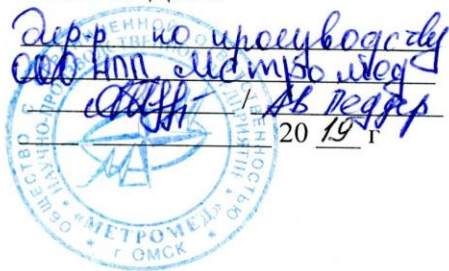 Дир-р по производству
ООО НПП Метромед
/ АВ Педдер
20 19 г
ОБЩЕСТВО С ОГРАНИЧЕННОЙ ОТВЕТСТВЕННОСТЬЮ
НАУЧНО-ПРОИЗВОДСТВЕННОЕ ПРЕДПРИЯТИЕ
«МЕТРОМЕД»
г ОМСК